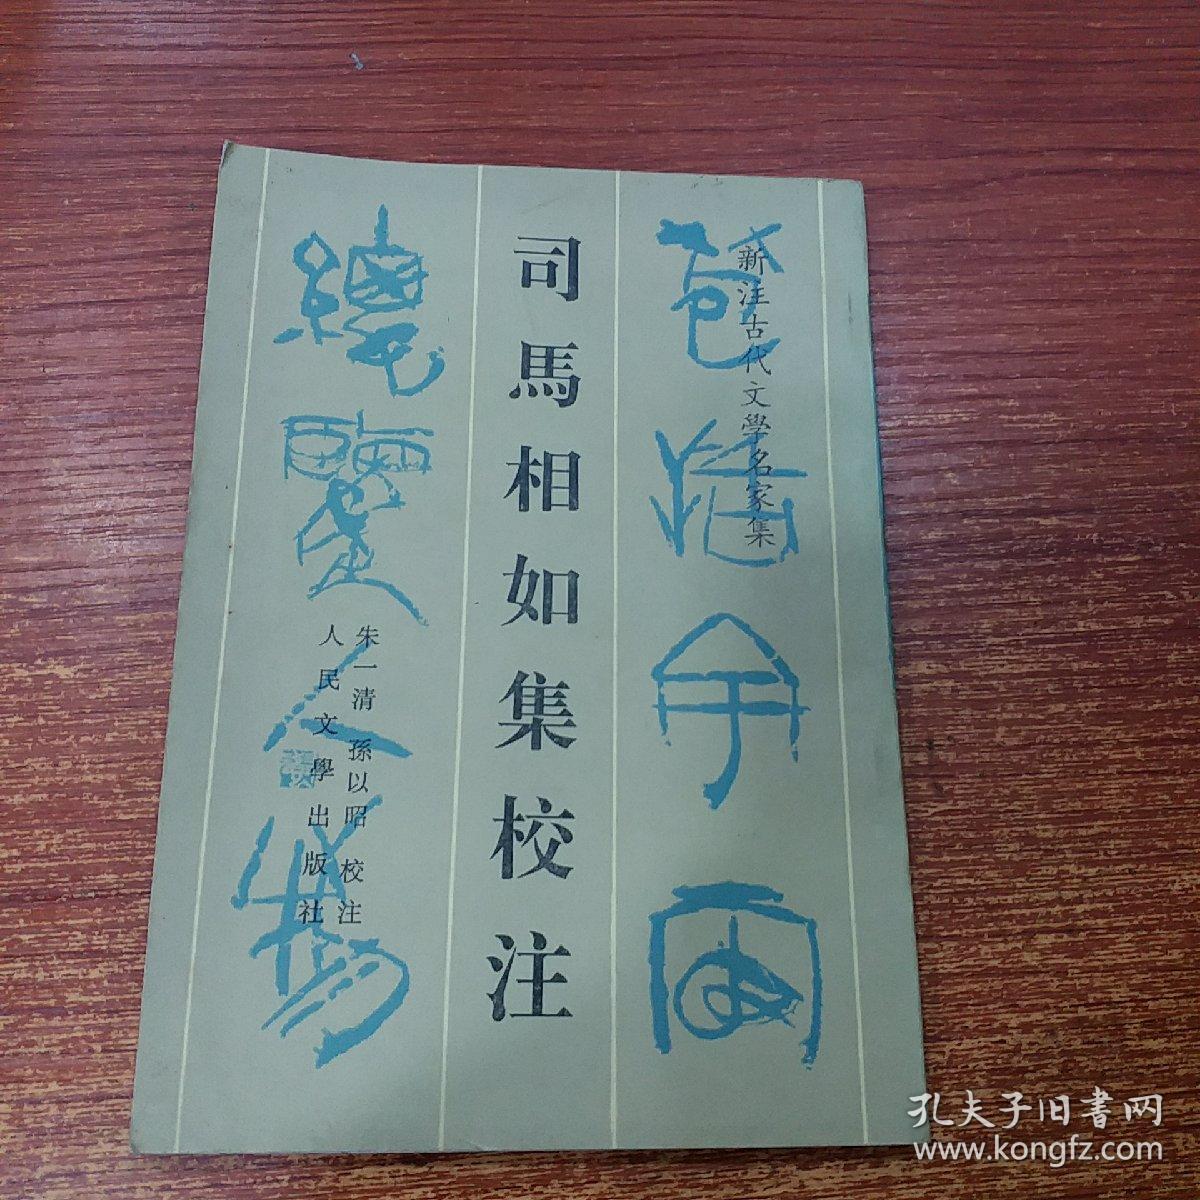 新注古代文學名家集
苞括宇宙
司馬相如集校注
總覽人物
朱一清 孫以昭 校注
人民文學出版社
孔夫子旧书网
www.kongfz.com